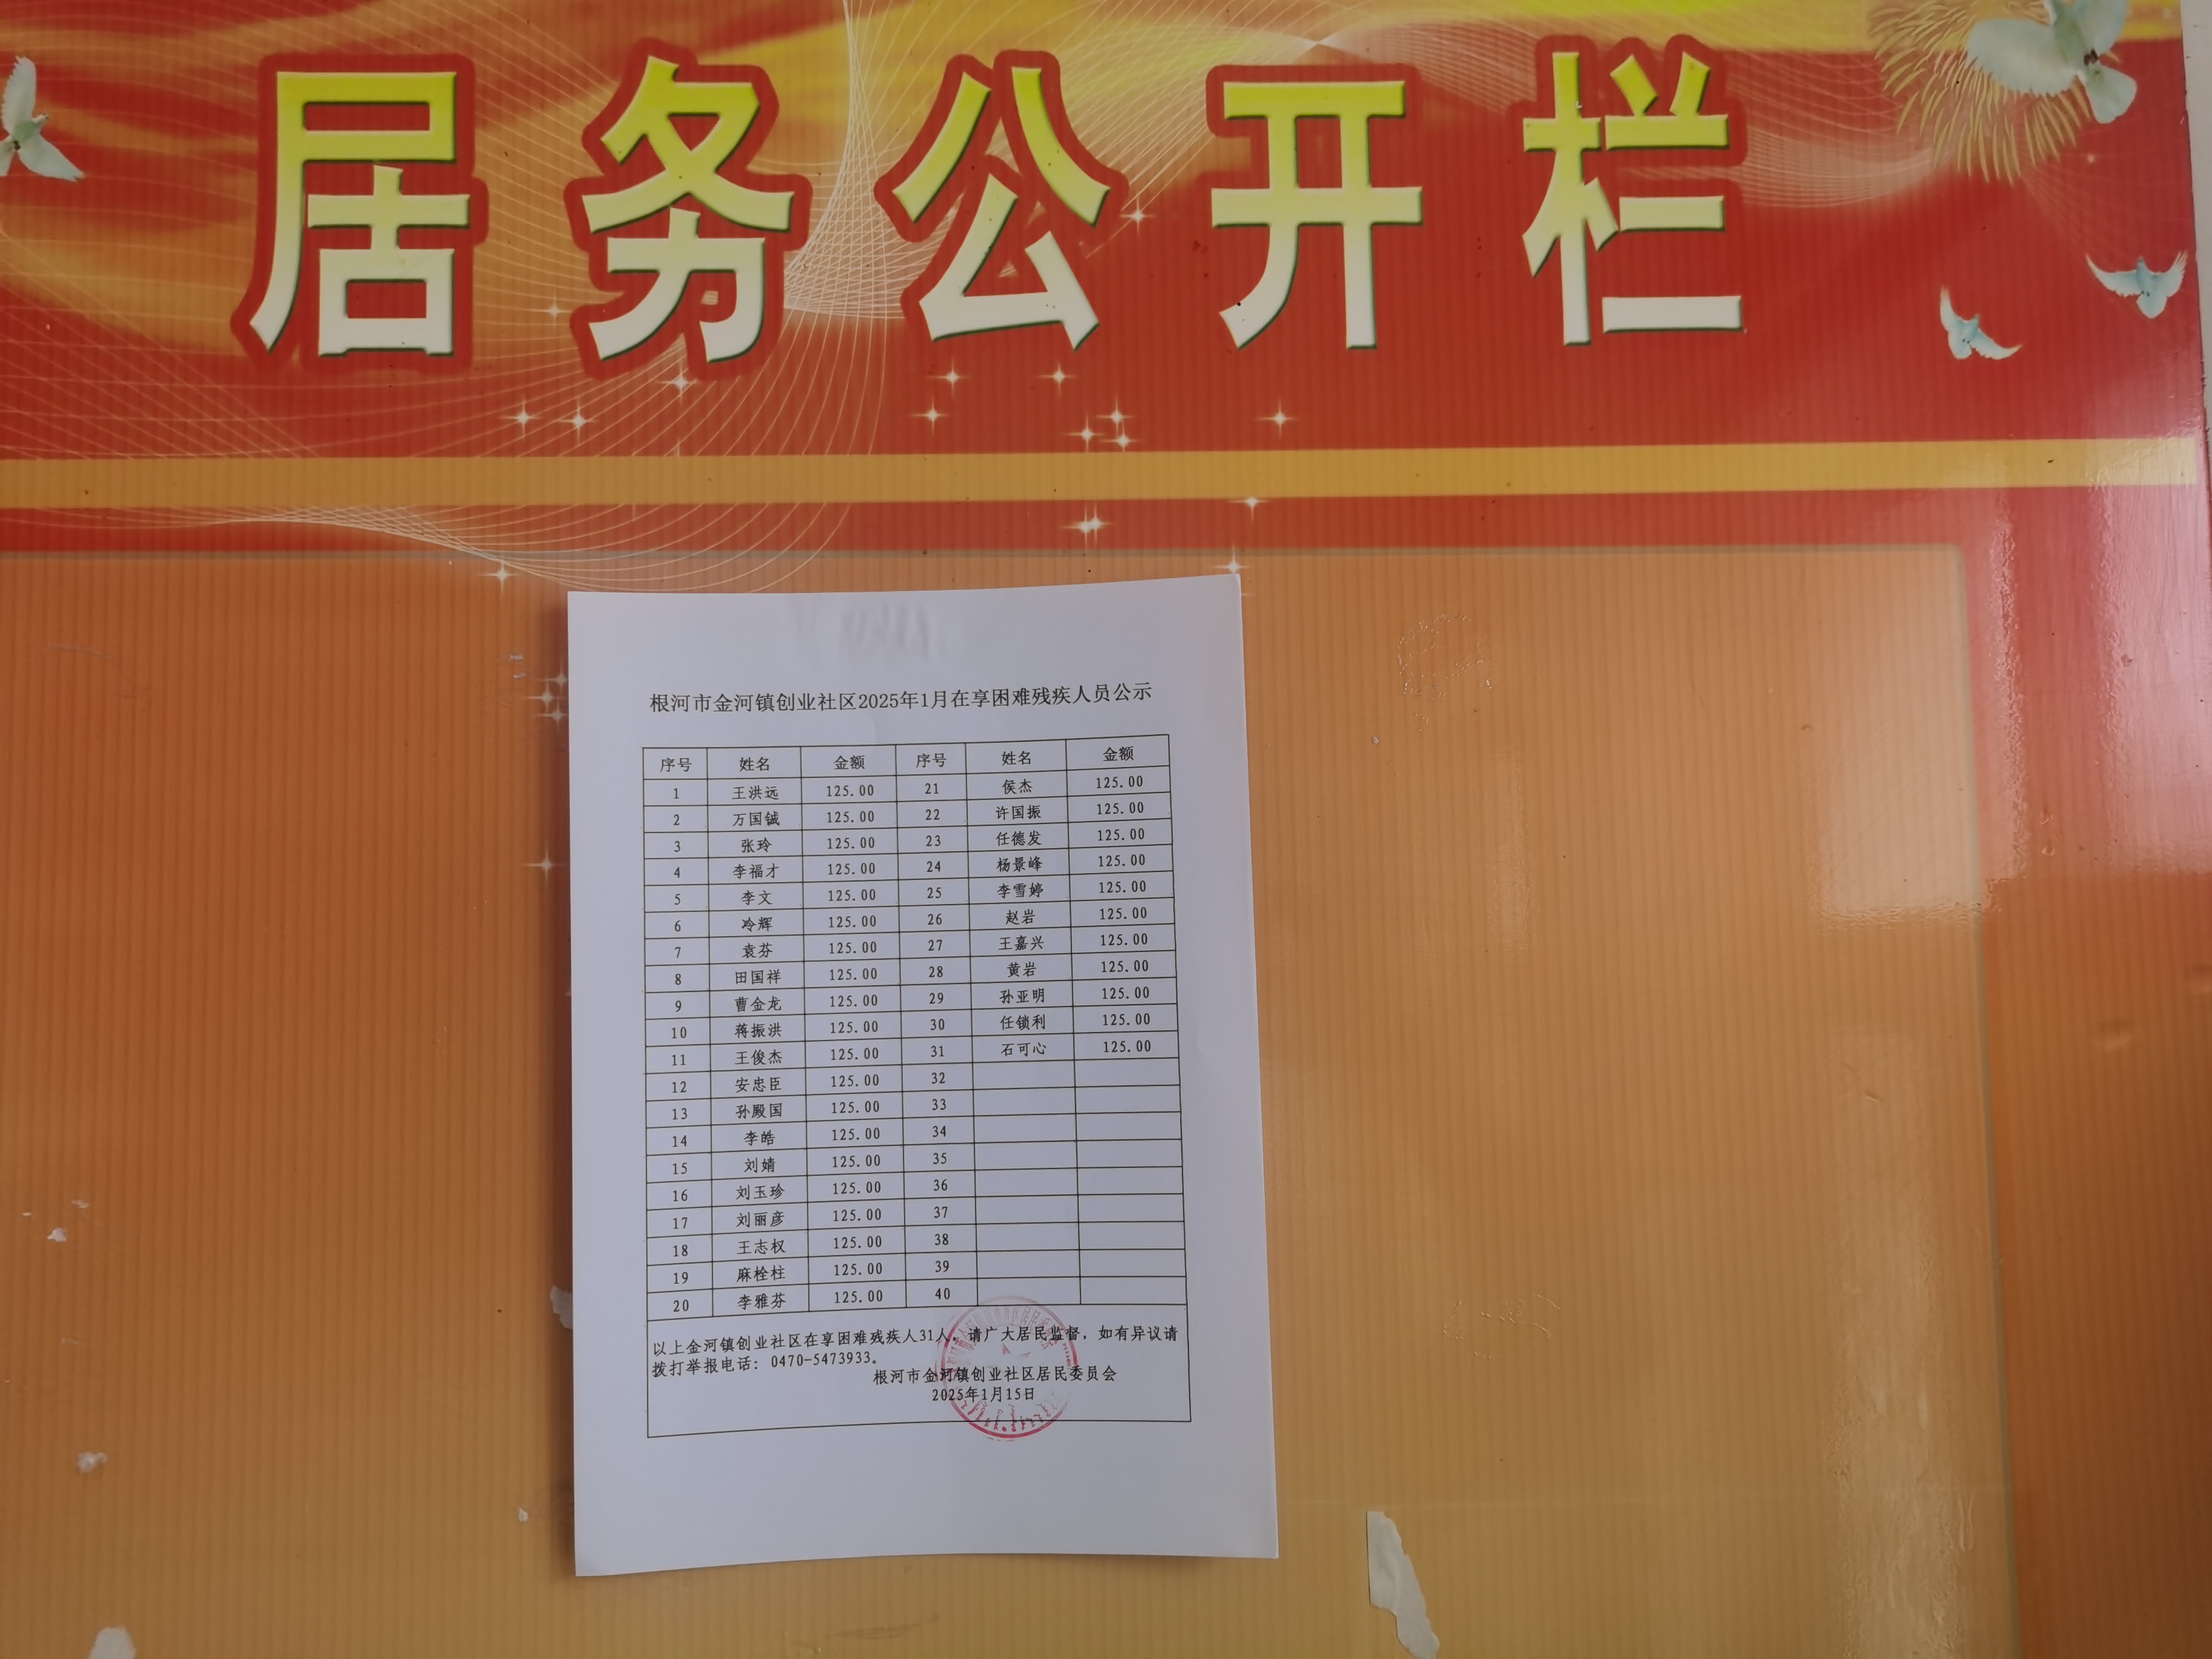 居务公开栏
根河市金河镇创业社区2025年1月在享困难残疾人员公示
序号 姓名 金额 序号 姓名 金额
1 王洪远 125.00 21 侯杰 125.00
2 万国铖 125.00 22 许国振 125.00
3 张玲 125.00 23 任德发 125.00
4 李福才 125.00 24 杨景峰 125.00
5 李文 125.00 25 李雪婷 125.00
6 冷辉 125.00 26 赵岩 125.00
7 袁芬 125.00 27 王嘉兴 125.00
8 田国祥 125.00 28 黄岩 125.00
9 曹金龙 125.00 29 孙亚明 125.00
10 蒋振洪 125.00 30 任锁利 125.00
11 王俊杰 125.00 31 石可心 125.00
12 安忠臣 125.00 32
13 孙殿国 125.00 33
14 李皓 125.00 34
15 刘婧 125.00 35
16 刘玉珍 125.00 36
17 刘丽彦 125.00 37
18 王志权 125.00 38
19 麻栓柱 125.00 39
20 李雅芬 125.00 40
以上金河镇创业社区在享困难残疾人31人，请广大居民监督，如有异议请
拨打举报电话：0470-5473933。
根河市金河镇创业社区居民委员会
2025年1月15日